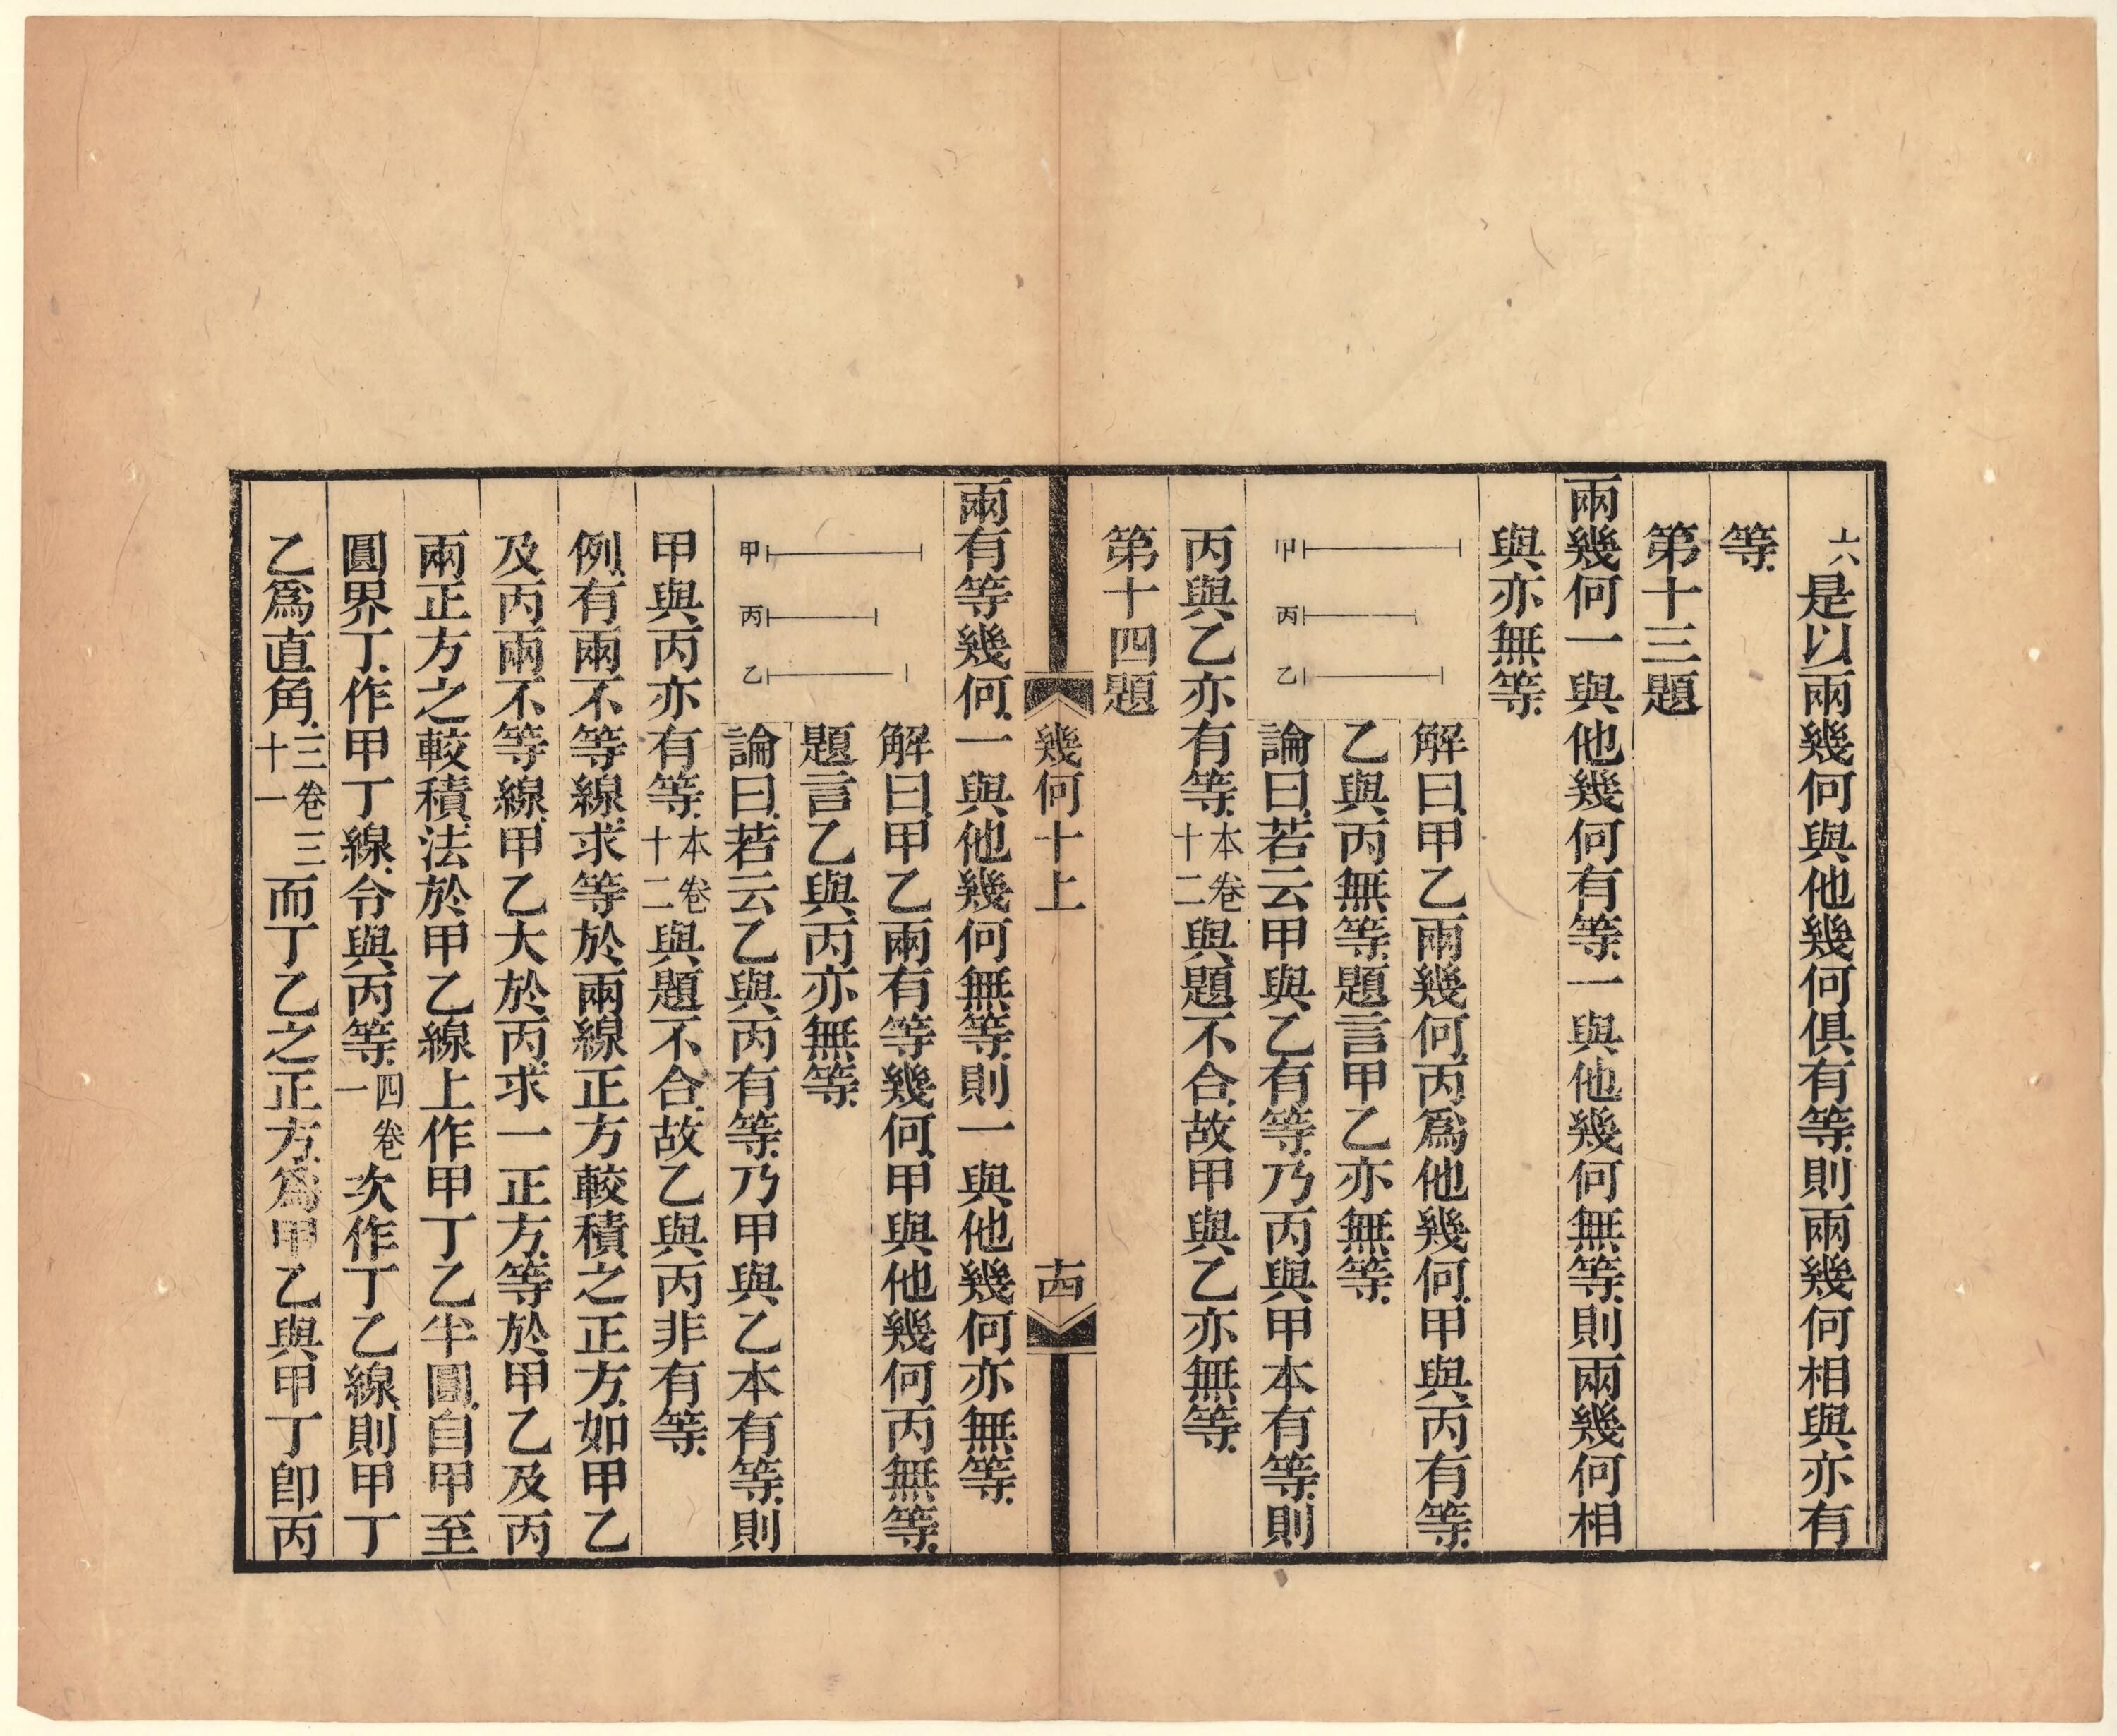 六是以兩幾何與他幾何俱有等則兩幾何相與亦有
等
第十三題
兩幾何一與他幾何有等一與他幾何無等則兩幾何相
與亦無等
甲
丙
乙
解曰甲乙兩幾何丙爲他幾何甲與丙有等
乙與丙無等題言甲乙亦無等
論曰若云甲與乙有等乃丙與甲本有等則
丙與乙亦有等本卷十二與題不合故甲與乙亦無等
第十四題
幾何十上
十四
兩有等幾何一與他幾何無等則一與他幾何亦無等
甲
丙
乙
解曰甲乙兩有等幾何甲與他幾何丙無等
題言乙與丙亦無等
論曰若云乙與丙有等乃甲與乙本有等則
甲與丙亦有等本卷十二與題不合故乙與丙非有等
例有兩不等線求等於兩線正方較積之正方如甲乙
及丙兩不等線甲乙大於丙求一正方等於甲乙及丙
兩正方之較積法於甲乙線上作甲丁乙半圓自甲至
圓界丁作甲丁線令與丙等四卷一次作丁乙線則甲丁
乙爲直角三卷三十一而丁乙之正方爲甲乙與甲丁卽丙